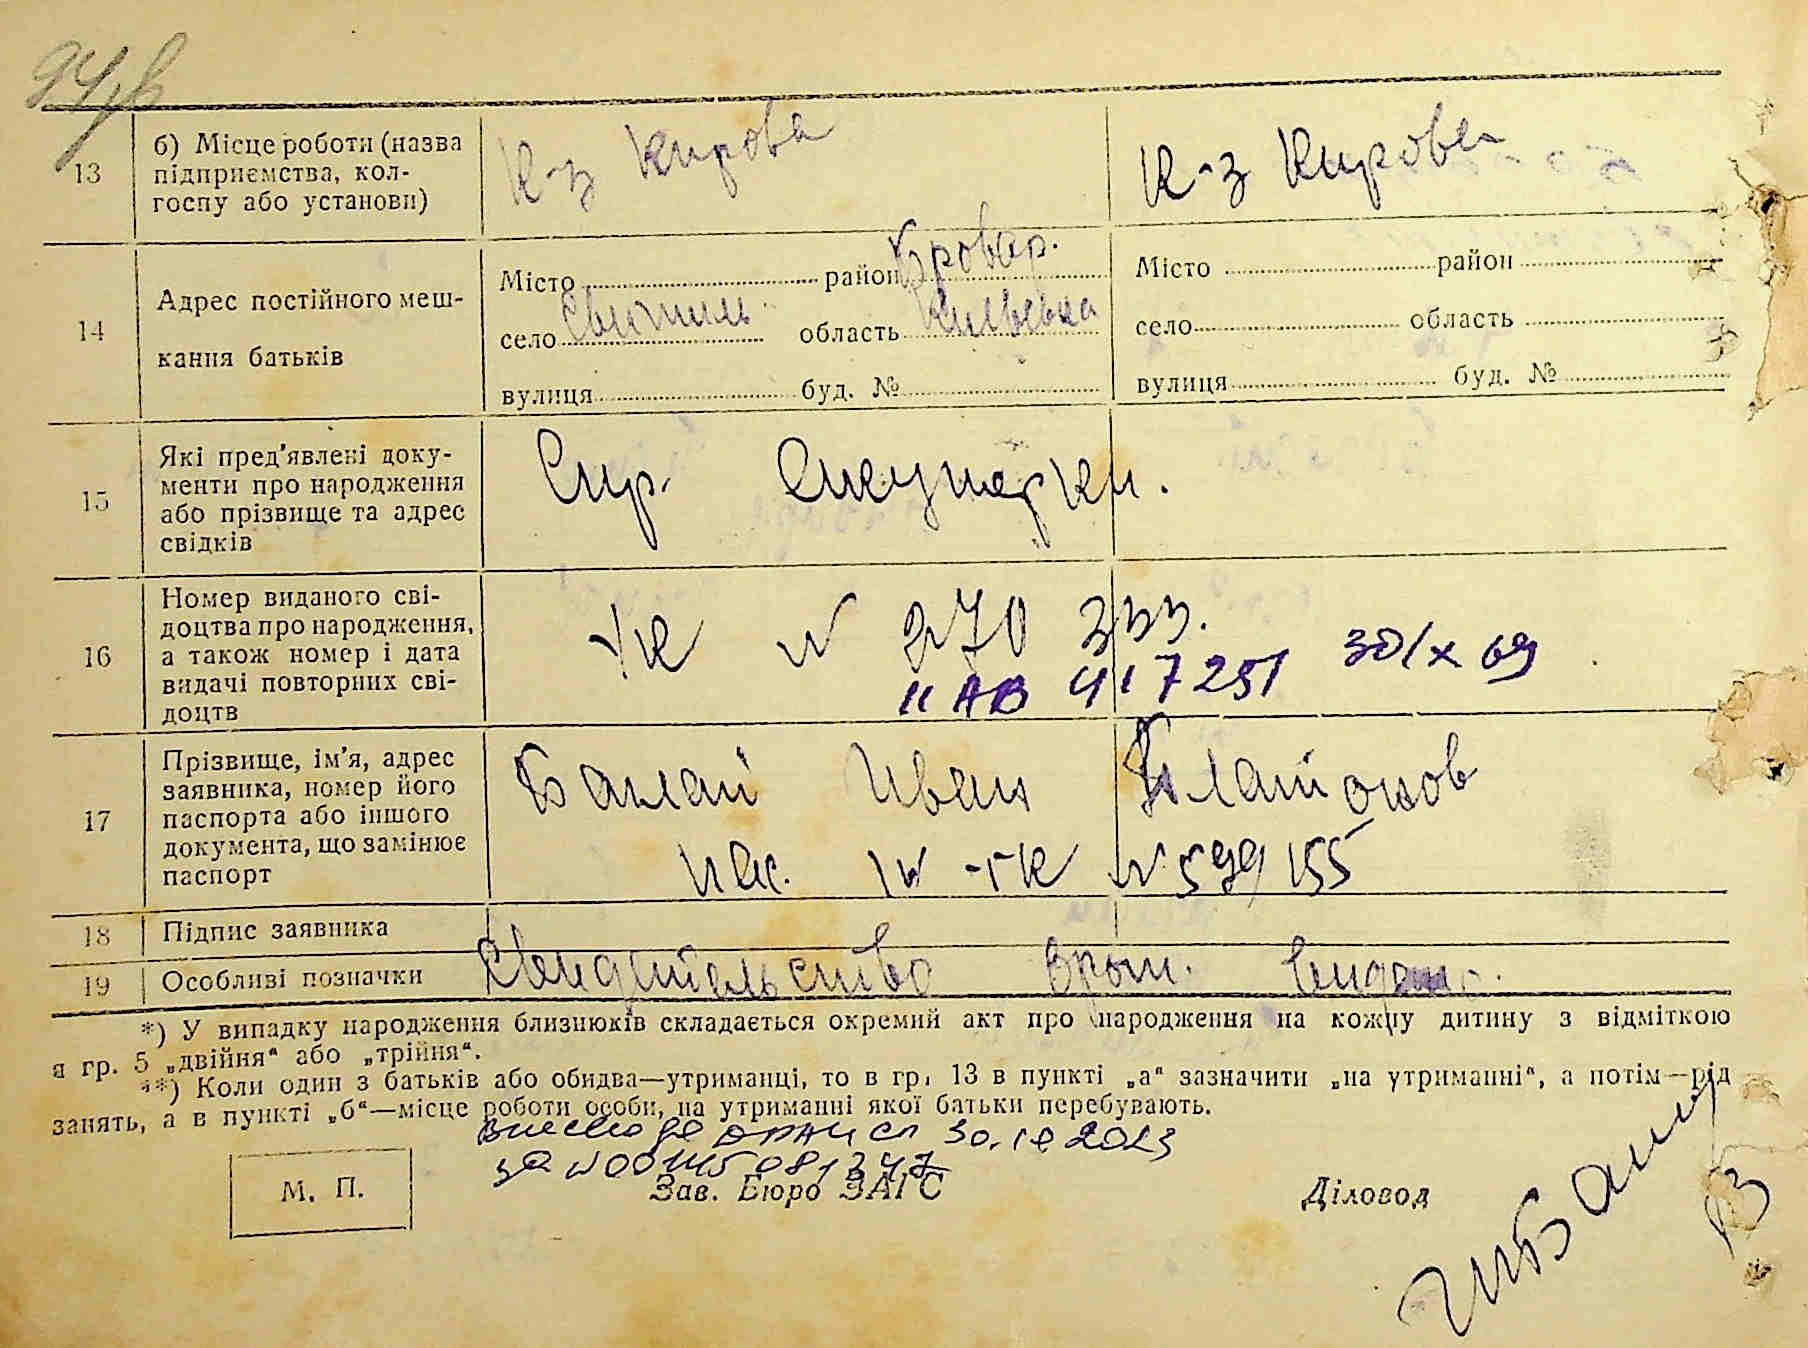 94 в
13 б) Місце роботи (назва підприємства, колгоспу або установи)
К-з Кирова
К-з Кирова
14 Адрес постійного мешкання батьків
Місто район Бровар.
село Світиль область Киевська
вулиця буд. №
Місто район
село область
вулиця буд. №
15 Які пред'явлені документи про народження або прізвище та адрес свідків
Спр. Акушерки.
16 Номер виданого свідоцтва про народження, а також номер і дата видачі повторних свідоцтв
УК № 270 333.
II АВ 417251 30/X 69
17 Прізвище, ім'я, адрес заявника, номер його паспорта або іншого документа, що замінює паспорт
Иван Платонов
№ 599155
18 Підпис заявника
19 Особливі позначки
Свидительство
*) У випадку народження близнюків складається окремий акт про народження на кожну дитину з відміткою
я гр. 5 „двійня“ або „трійня“.
**) Коли один з батьків або обидва—утриманці, то в гр. 13 в пункті „а“ зазначити „на утриманні“, а потім—рід
занять, а в пункті „б“—місце роботи особи, на утриманні якої батьки перебувають.
внесено до ДРАЦСГ 2023
М. П.
Зав. Бюро ЗАГС
Діловод